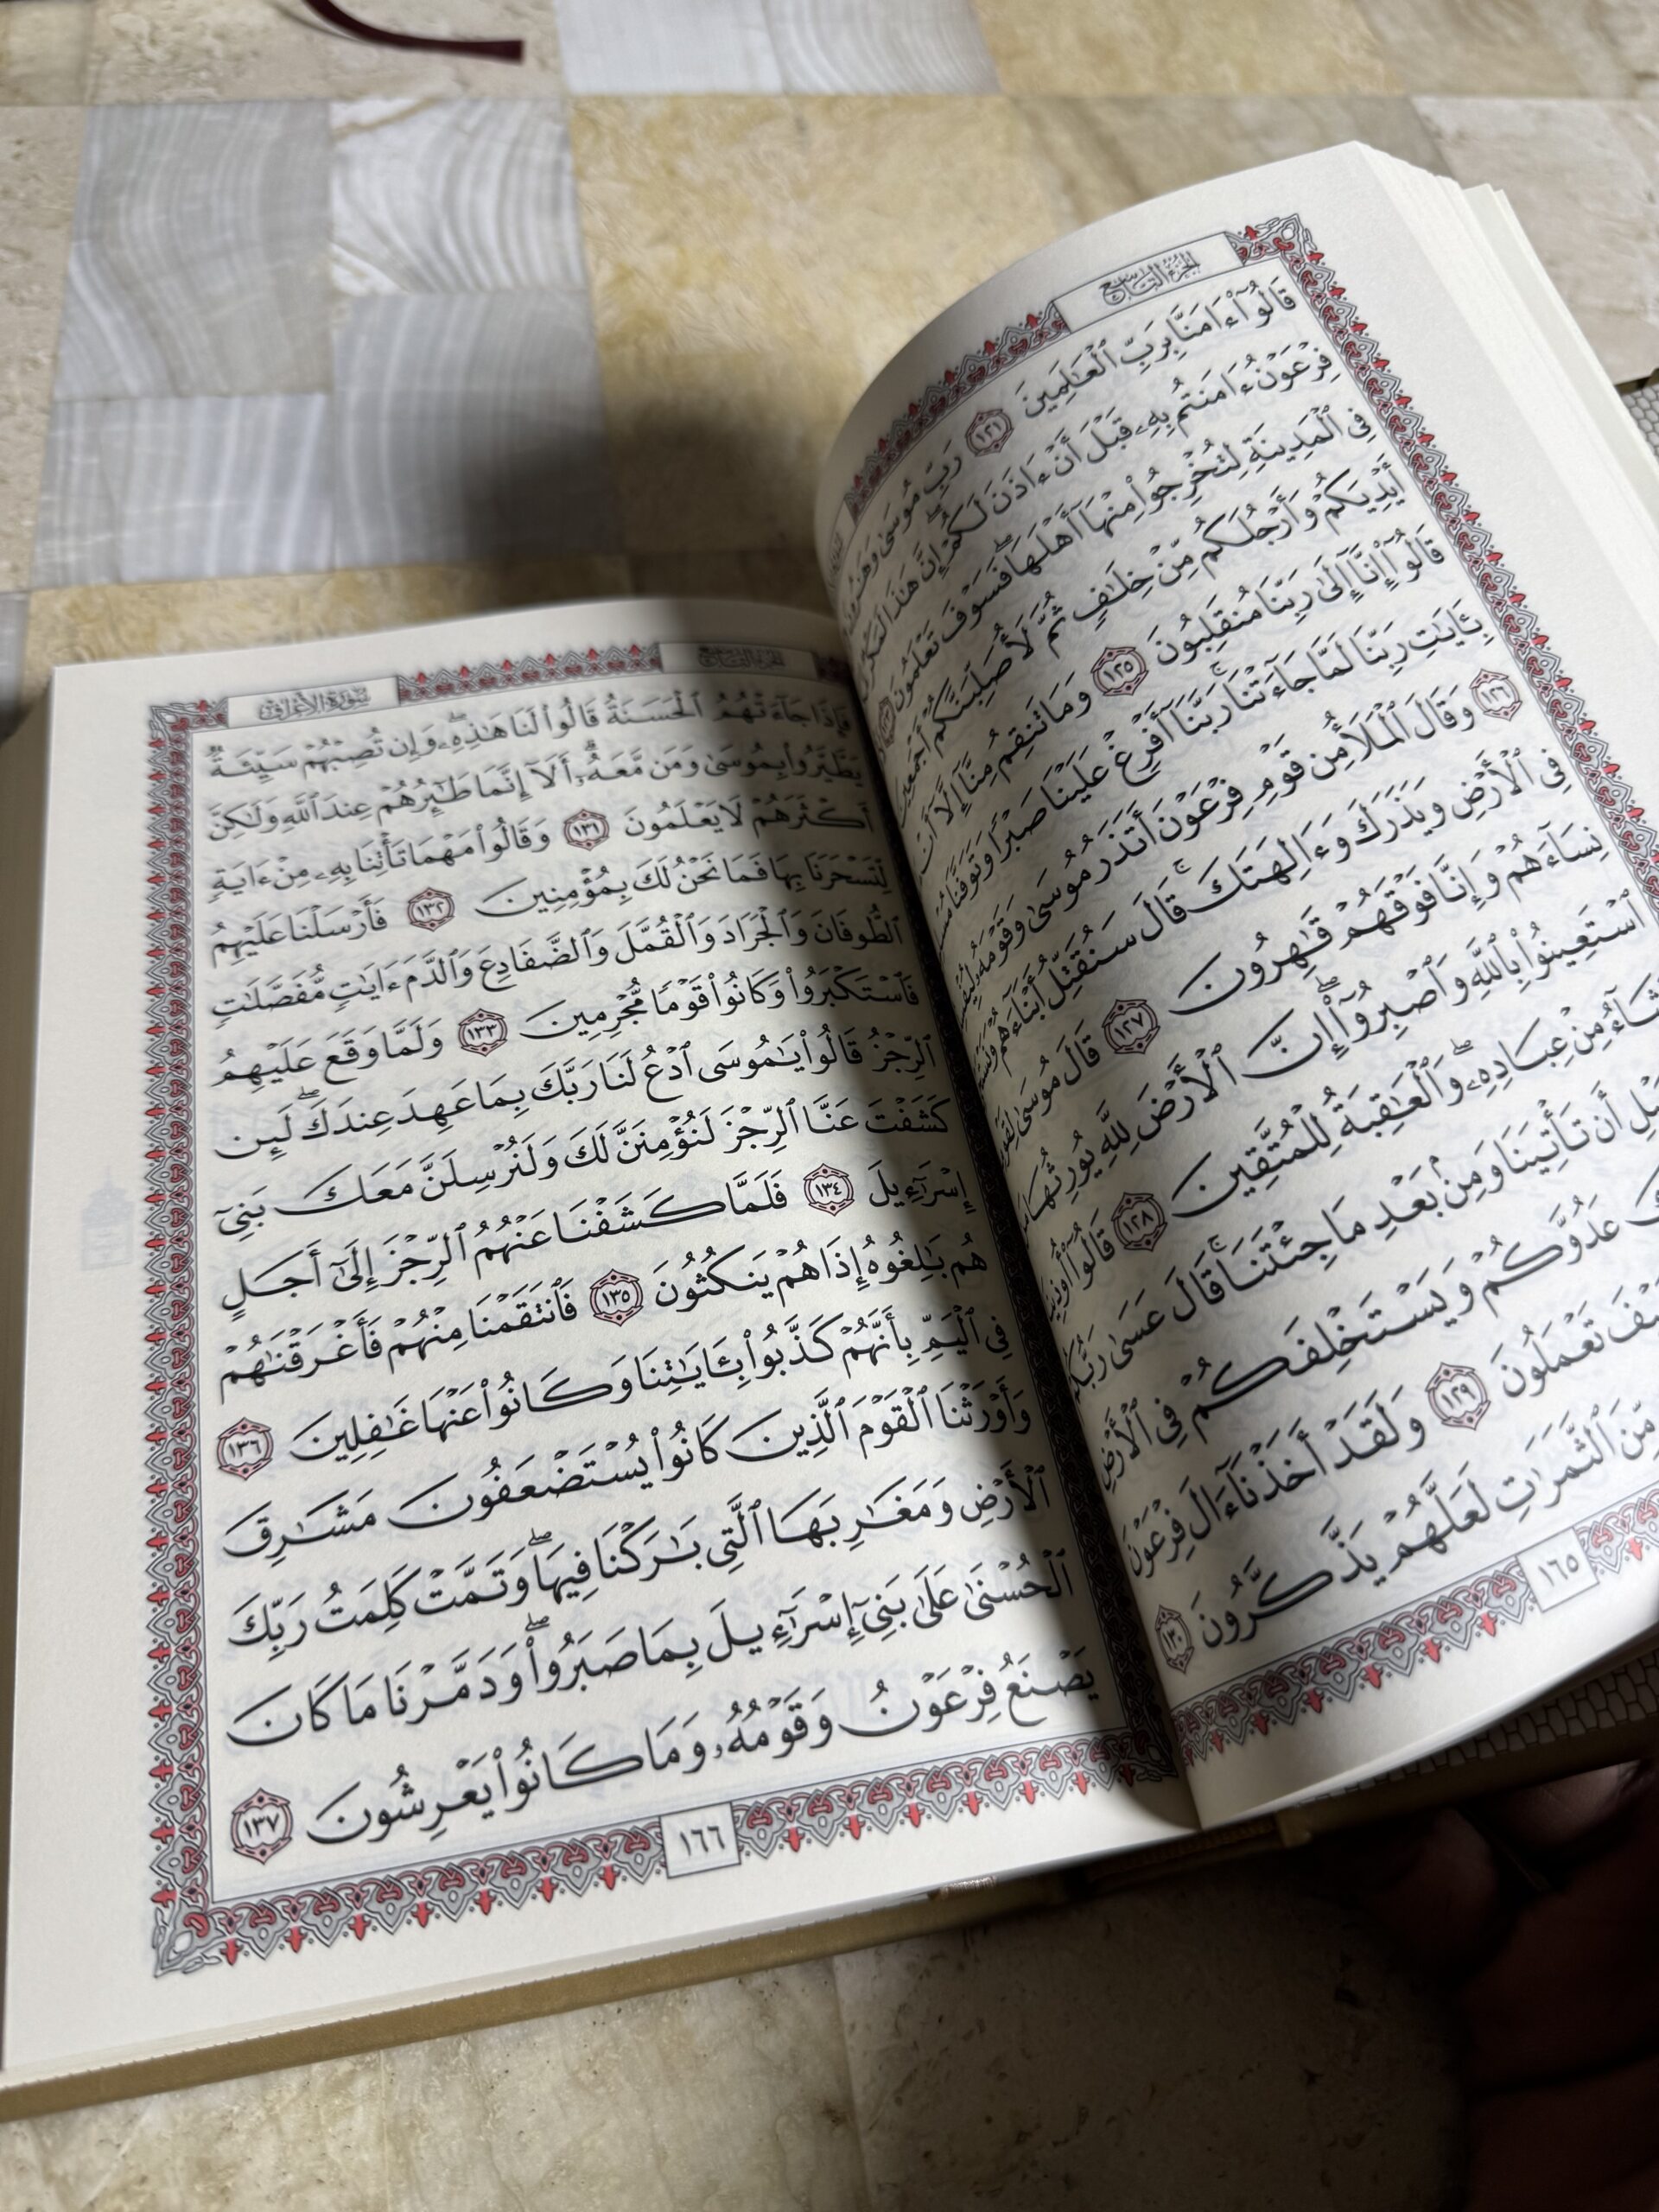 الجزء التاسع
قَالُوٓا۟ ءَامَنَّا بِرَبِّ ٱلْعَٰلَمِينَ ١٢١ رَبِّ مُوسَىٰ وَهَٰرُونَ
فِرْعَوْنُ ءَامَنتُم بِهِۦ قَبْلَ أَنْ ءَاذَنَ لَكُمْ ۖ إِنَّ هَٰذَا لَمَكْرٌ
فِى ٱلْمَدِينَةِ لِتُخْرِجُوا۟ مِنْهَآ أَهْلَهَا ۖ فَسَوْفَ تَعْلَمُونَ
أَيْدِيَكُمْ وَأَرْجُلَكُم مِّنْ خِلَٰفٍ ثُمَّ لَأُصَلِّبَنَّكُمْ أَجْمَعِينَ
قَالُوٓا۟ إِنَّآ إِلَىٰ رَبِّنَا مُنقَلِبُونَ ١٢٥ وَمَا تَنقِمُ مِنَّآ إِلَّآ أَنْ
بِـَٔايَٰتِ رَبِّنَا لَمَّا جَآءَتْنَا ۚ رَبَّنَآ أَفْرِغْ عَلَيْنَا صَبْرًا وَتَوَفَّنَا
١٢٦ وَقَالَ ٱلْمَلَأُ مِن قَوْمِ فِرْعَوْنَ أَتَذَرُ مُوسَىٰ وَقَوْمَهُۥ
فِى ٱلْأَرْضِ وَيَذَرَكَ وَءَالِهَتَكَ ۚ قَالَ سَنُقَتِّلُ أَبْنَآءَهُمْ
نِسَآءَهُمْ وَإِنَّا فَوْقَهُمْ قَٰهِرُونَ ١٢٧ قَالَ مُوسَىٰ
ٱسْتَعِينُوا۟ بِٱللَّهِ وَٱصْبِرُوٓا۟ ۖ إِنَّ ٱلْأَرْضَ لِلَّهِ يُورِثُهَا
مِنْ عِبَادِهِۦ ۖ وَٱلْعَٰقِبَةُ لِلْمُتَّقِينَ ١٢٨ قَالُوٓا۟ أُوذِينَا
أَن تَأْتِيَنَا وَمِنۢ بَعْدِ مَا جِئْتَنَا ۚ قَالَ عَسَىٰ رَبُّكُمْ
عَدُوَّكُمْ وَيَسْتَخْلِفَكُمْ فِى ٱلْأَرْضِ
تَعْمَلُونَ ١٢٩ وَلَقَدْ أَخَذْنَآ ءَالَ فِرْعَوْنَ
مِّنَ ٱلثَّمَرَٰتِ لَعَلَّهُمْ يَذَّكَّرُونَ ١٣٠
١٦٥
الجزء التاسع
سورة الأعراف
فَإِذَا جَآءَتْهُمُ ٱلْحَسَنَةُ قَالُوا۟ لَنَا هَٰذِهِۦ ۖ وَإِن تُصِبْهُمْ سَيِّئَةٌ
يَطَّيَّرُوا۟ بِمُوسَىٰ وَمَن مَّعَهُۥٓ ۗ أَلَآ إِنَّمَا طَٰٓئِرُهُمْ عِندَ ٱللَّهِ وَلَٰكِنَّ
أَكْثَرَهُمْ لَا يَعْلَمُونَ ١٣١ وَقَالُوا۟ مَهْمَا تَأْتِنَا بِهِۦ مِنْ ءَايَةٍ
لِّتَسْحَرَنَا بِهَا فَمَا نَحْنُ لَكَ بِمُؤْمِنِينَ ١٣٢ فَأَرْسَلْنَا عَلَيْهِمُ
ٱلطُّوفَانَ وَٱلْجَرَادَ وَٱلْقُمَّلَ وَٱلضَّفَادِعَ وَٱلدَّمَ ءَايَٰتٍ مُّفَصَّلَٰتٍ
فَٱسْتَكْبَرُوا۟ وَكَانُوا۟ قَوْمًا مُّجْرِمِينَ ١٣٣ وَلَمَّا وَقَعَ عَلَيْهِمُ
ٱلرِّجْزُ قَالُوا۟ يَٰمُوسَى ٱدْعُ لَنَا رَبَّكَ بِمَا عَهِدَ عِندَكَ ۖ لَئِن
كَشَفْتَ عَنَّا ٱلرِّجْزَ لَنُؤْمِنَنَّ لَكَ وَلَنُرْسِلَنَّ مَعَكَ بَنِىٓ
إِسْرَٰٓءِيلَ ١٣٤ فَلَمَّا كَشَفْنَا عَنْهُمُ ٱلرِّجْزَ إِلَىٰٓ أَجَلٍ
هُم بَٰلِغُوهُ إِذَا هُمْ يَنكُثُونَ ١٣٥ فَٱنتَقَمْنَا مِنْهُمْ فَأَغْرَقْنَٰهُمْ
فِى ٱلْيَمِّ بِأَنَّهُمْ كَذَّبُوا۟ بِـَٔايَٰتِنَا وَكَانُوا۟ عَنْهَا غَٰفِلِينَ ١٣٦
وَأَوْرَثْنَا ٱلْقَوْمَ ٱلَّذِينَ كَانُوا۟ يُسْتَضْعَفُونَ مَشَٰرِقَ
ٱلْأَرْضِ وَمَغَٰرِبَهَا ٱلَّتِى بَٰرَكْنَا فِيهَا ۖ وَتَمَّتْ كَلِمَتُ رَبِّكَ
ٱلْحُسْنَىٰ عَلَىٰ بَنِىٓ إِسْرَٰٓءِيلَ بِمَا صَبَرُوا۟ ۖ وَدَمَّرْنَا مَا كَانَ
يَصْنَعُ فِرْعَوْنُ وَقَوْمُهُۥ وَمَا كَانُوا۟ يَعْرِشُونَ ١٣٧
١٦٦